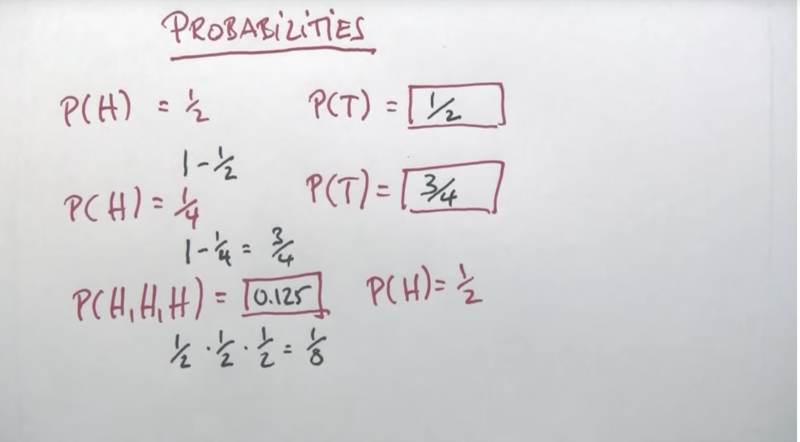 PROBABILITIES
P(H) = 1/2 P(T) = 1/2
1 - 1/2
P(H) = 1/4 P(T) = 3/4
1 - 1/4 = 3/4
P(H,H,H) = 0.125 P(H) = 1/2
1/2 · 1/2 · 1/2 = 1/8